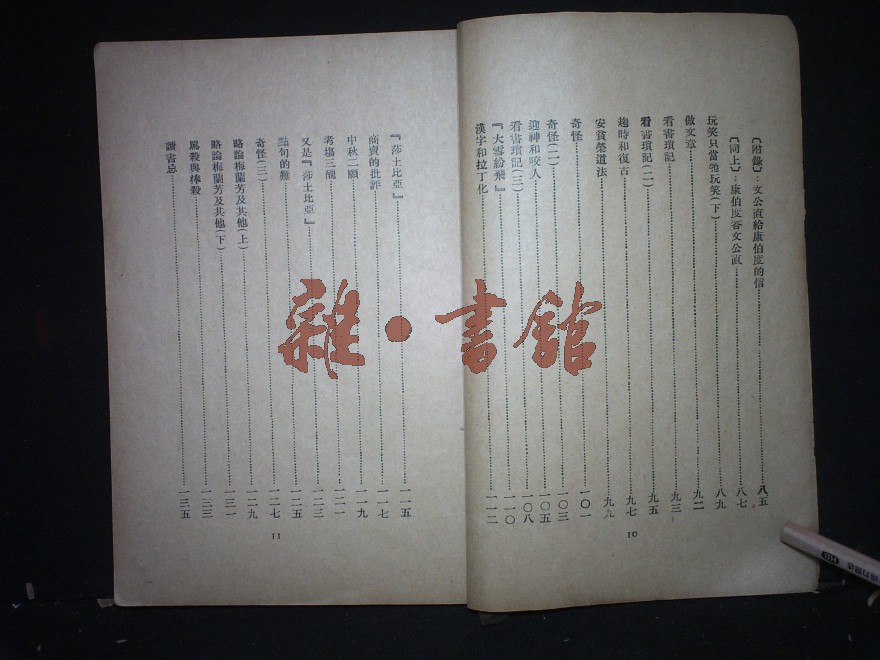 〔附錄〕：文公直給康伯度的信……八五
〔同上〕：康伯度答文公直……八七
玩笑只當牠玩笑(下)……八九
做文章……九二
看書瑣記……九三
看書瑣記(二)……九五
趨時和復古……九七
安貧樂道法……九九
奇怪……一〇一
奇怪(二)……一〇三
迎神和咬人……一〇五
看書瑣記(三)……一〇八
『大雪紛飛』……一一〇
漢字和拉丁化……一一二
10
『莎士比亞』……一一五
商賈的批評……一一七
中秋二願……一一九
考場三醜……一二一
又是『莎士比亞』……一二三
點句的難……一二五
奇怪(三)……一二七
略論梅蘭芳及其他(上)……一二九
略論梅蘭芳及其他(下)……一三一
罵殺與捧殺……一三三
讀書忌……一三五
11
雜·書館
HB